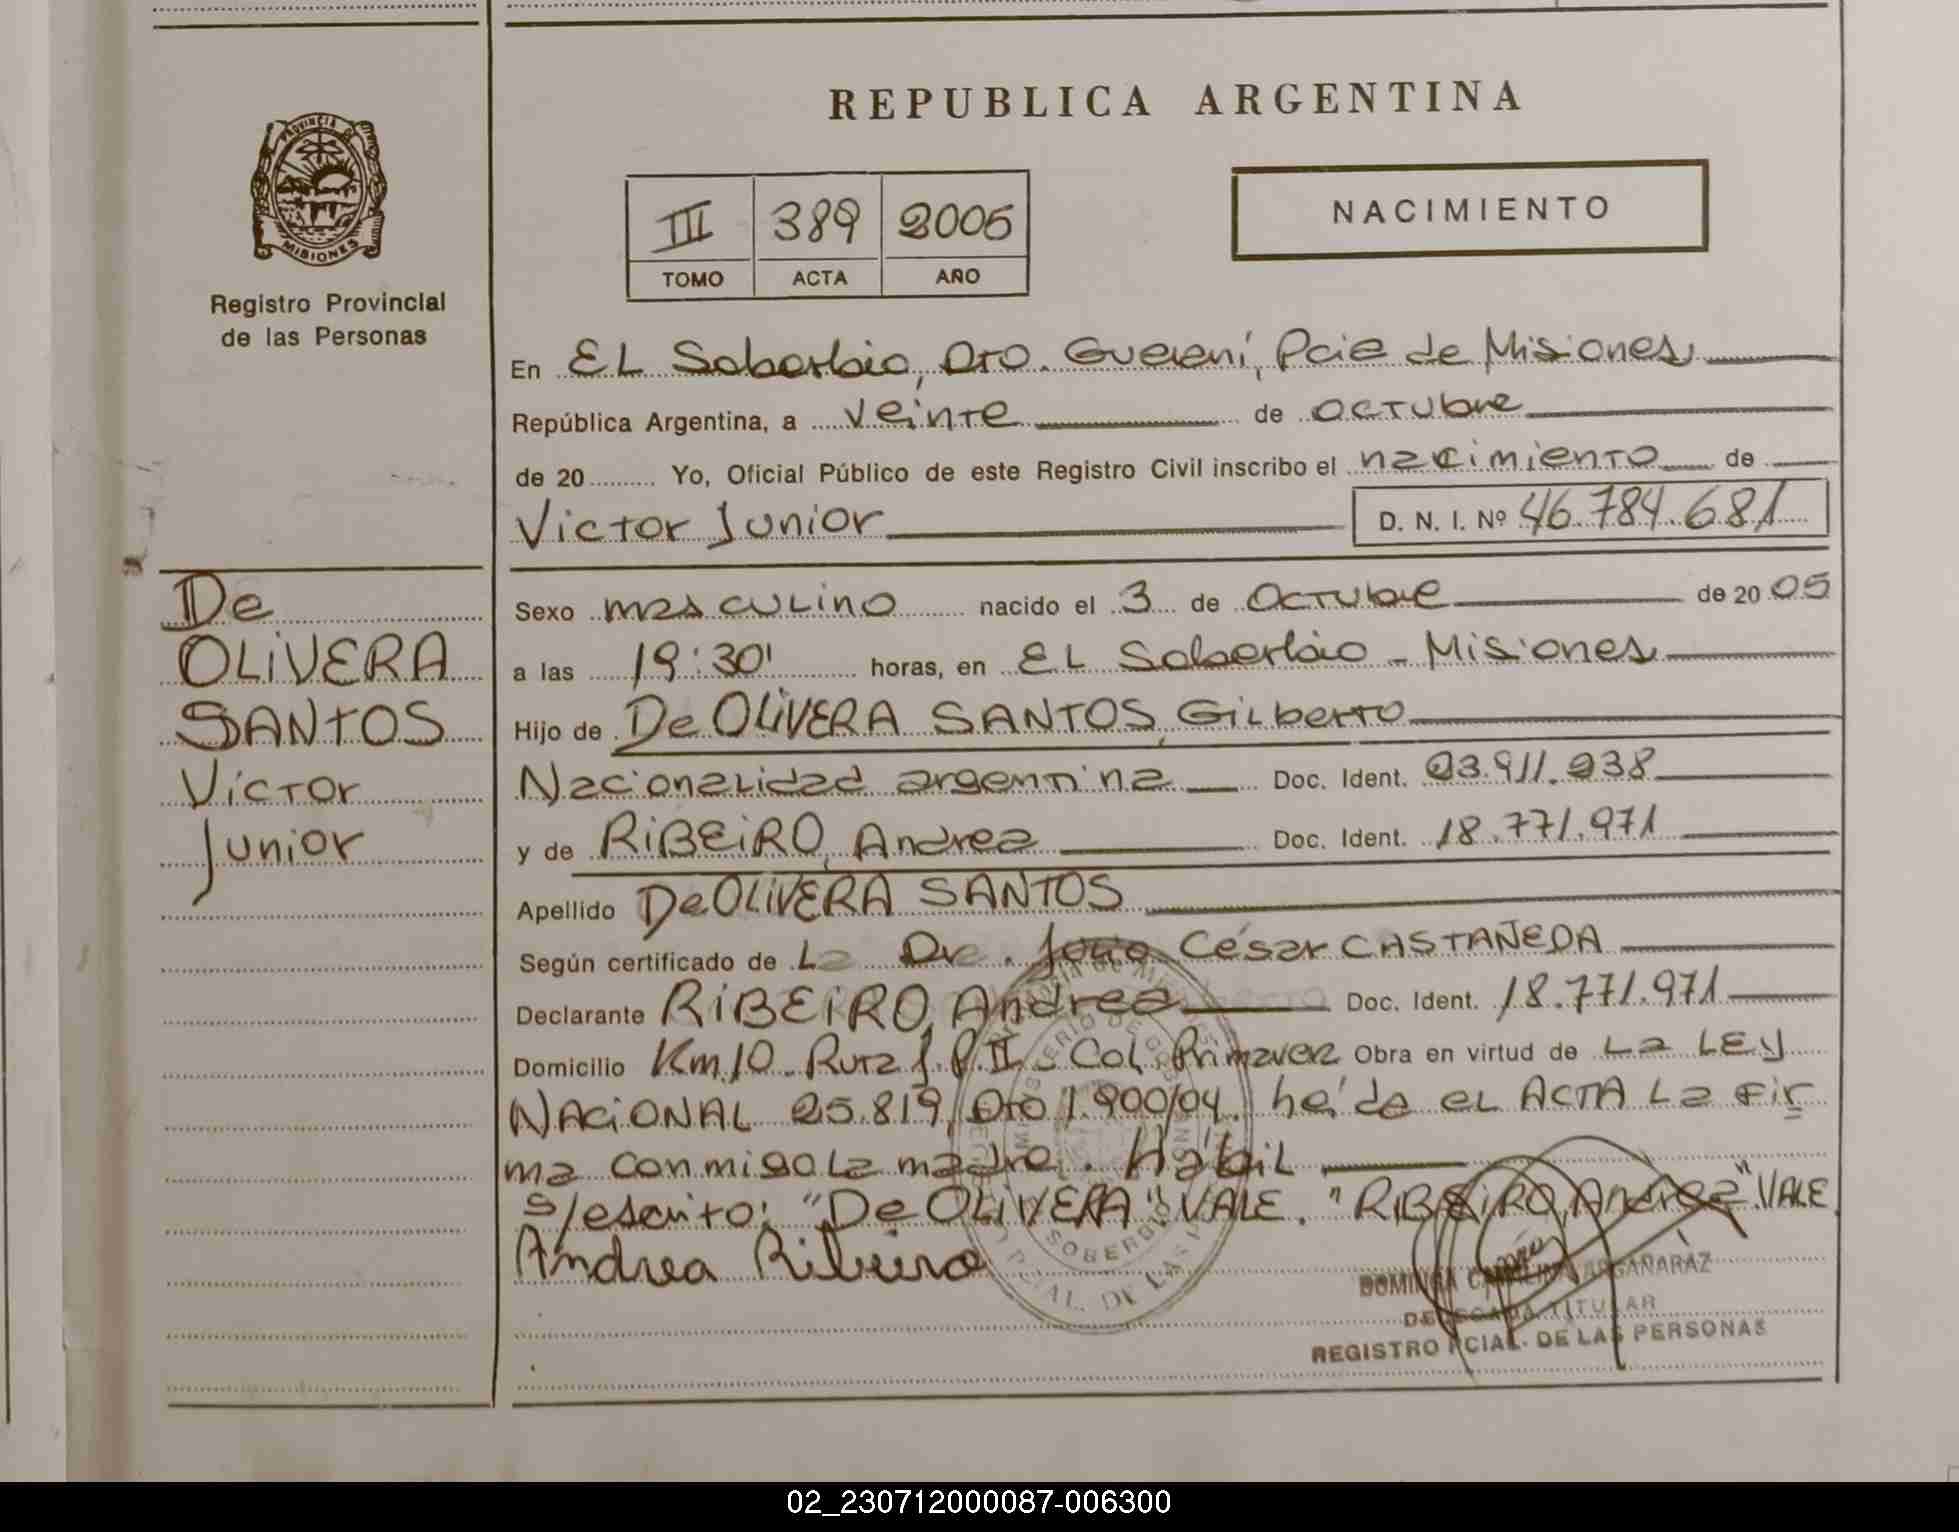 REPUBLICA ARGENTINA
PROVINCIA DE
MISIONES
Registro Provincial
de las Personas
III 389 2005
TOMO ACTA AÑO
NACIMIENTO
En EL Soberbio, Dto. Guaraní, Pcia de Misiones
República Argentina, a veinte de octubre
de 20 Yo, Oficial Público de este Registro Civil inscribo el nacimiento de
Victor Junior D. N. I. Nº 46.784.681
De
OLIVERA
SANTOS
Victor
Junior
Sexo masculino nacido el 3 de Octubre de 20 05
a las 19:30' horas, en EL Soberbio - Misiones
Hijo de De OLIVERA SANTOS, Gilberto
Nacionalidad argentina Doc. Ident. 93.911.938
y de RIBEIRO, Andrea Doc. Ident. 18.771.971
Apellido De OLIVERA SANTOS
Según certificado de La Dr. César CASTAÑEDA
Declarante RIBEIRO, Andrea Doc. Ident. 18.771.971
Domicilio Km 10 - Ruta J. P. II - Col. Primavera Obra en virtud de La LEY
NACIONAL 25.819, Dto 1.900/04. leída el ACTA La fir
ma conmigo La madre. Hábil
s/escrito: "De OLIVERA" VALE. "RIBEIRO, Andrea" VALE
Andrea Ribeiro
SOBERBIO
PCIAL. DE LAS
DOMINGA ARGAÑARAZ
DELEGADA TITULAR
REGISTRO PCIAL. DE LAS PERSONAS
02_230712000087-006300